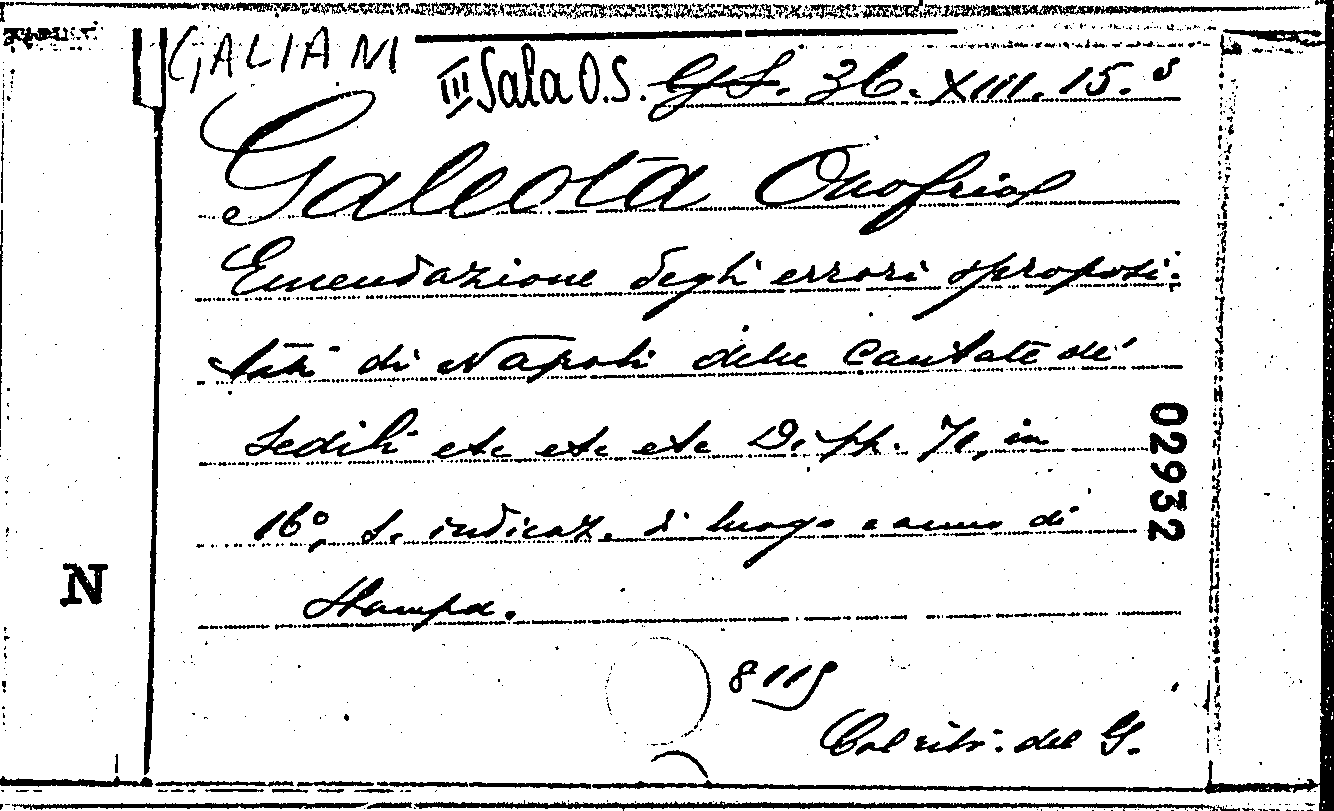 GALIANI
III Sala O.S. G.S. 36. XIII. 15.
Galeota Onofrio
Emendazione degli errori sproposi-
tati di Napoli delle Cantate de'
Sedili etc etc etc Di pp. 71, in
16°, s. indicaz. di luogo e anno di
Stampa.
02932
N
8119
Col ritr. del G.